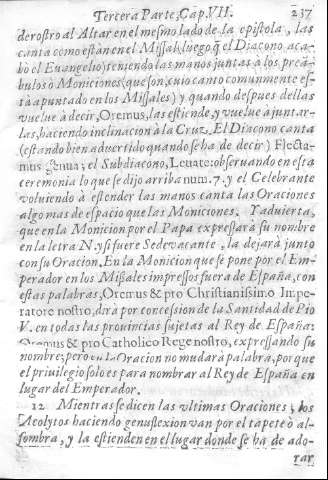 Tercera Parte, Cap. VII. 237
de rostro al Altar en el mesmo lado de la epistola, las
canta como està en el Missal (luego q̃ el Diacono aca-
bò el Euangelio) teniendo las manos juntas à los preã-
bulos ò Moniciones (que son, cuio canto comunmente es-
tà apuntado en los Missales) y quando despues dellas
vuelue à decir, Oremus, las estiende, y vuelue à juntar-
las, haciendo inclinacion à la Cruz. El Diacono canta
(estando bien aduertido quando se ha de decir) Flecta-
mus genua; el Subdiacono, Leuate: obseruando en esta
ceremonia lo que se dijo arriba num. 7. y el Celebrante
voluiendo à estender las manos canta las Oraciones
algo mas de espacio que las Moniciones. Y aduierta,
que en la Monicion por el Papa expressarà su nombre
en la letra N. y si fuere Sedevacante, la dejarà junto
con su Oracion. En la Monicion que se pone por el Em-
perador en los Missales impressos fuera de España, con
estas palabras, Oremus & pro Christianissimo Impe-
ratore nostro, dirà por concession de la Santidad de Pio
V. en todas las prouincias sujetas al Rey de España:
Oremus & pro Catholico Rege nostro, expressando su
nombre; pero en la Oracion no mudarà palabra, porque
el priuilegio solo es para nombrar al Rey de España en
lugar del Emperador.
12 Mientras se dicen las vltimas Oraciones, los
Acolytos haciendo genuflexion van por el tapete ò al-
fombra, y la estienden en el lugar donde se ha de ado-
rar